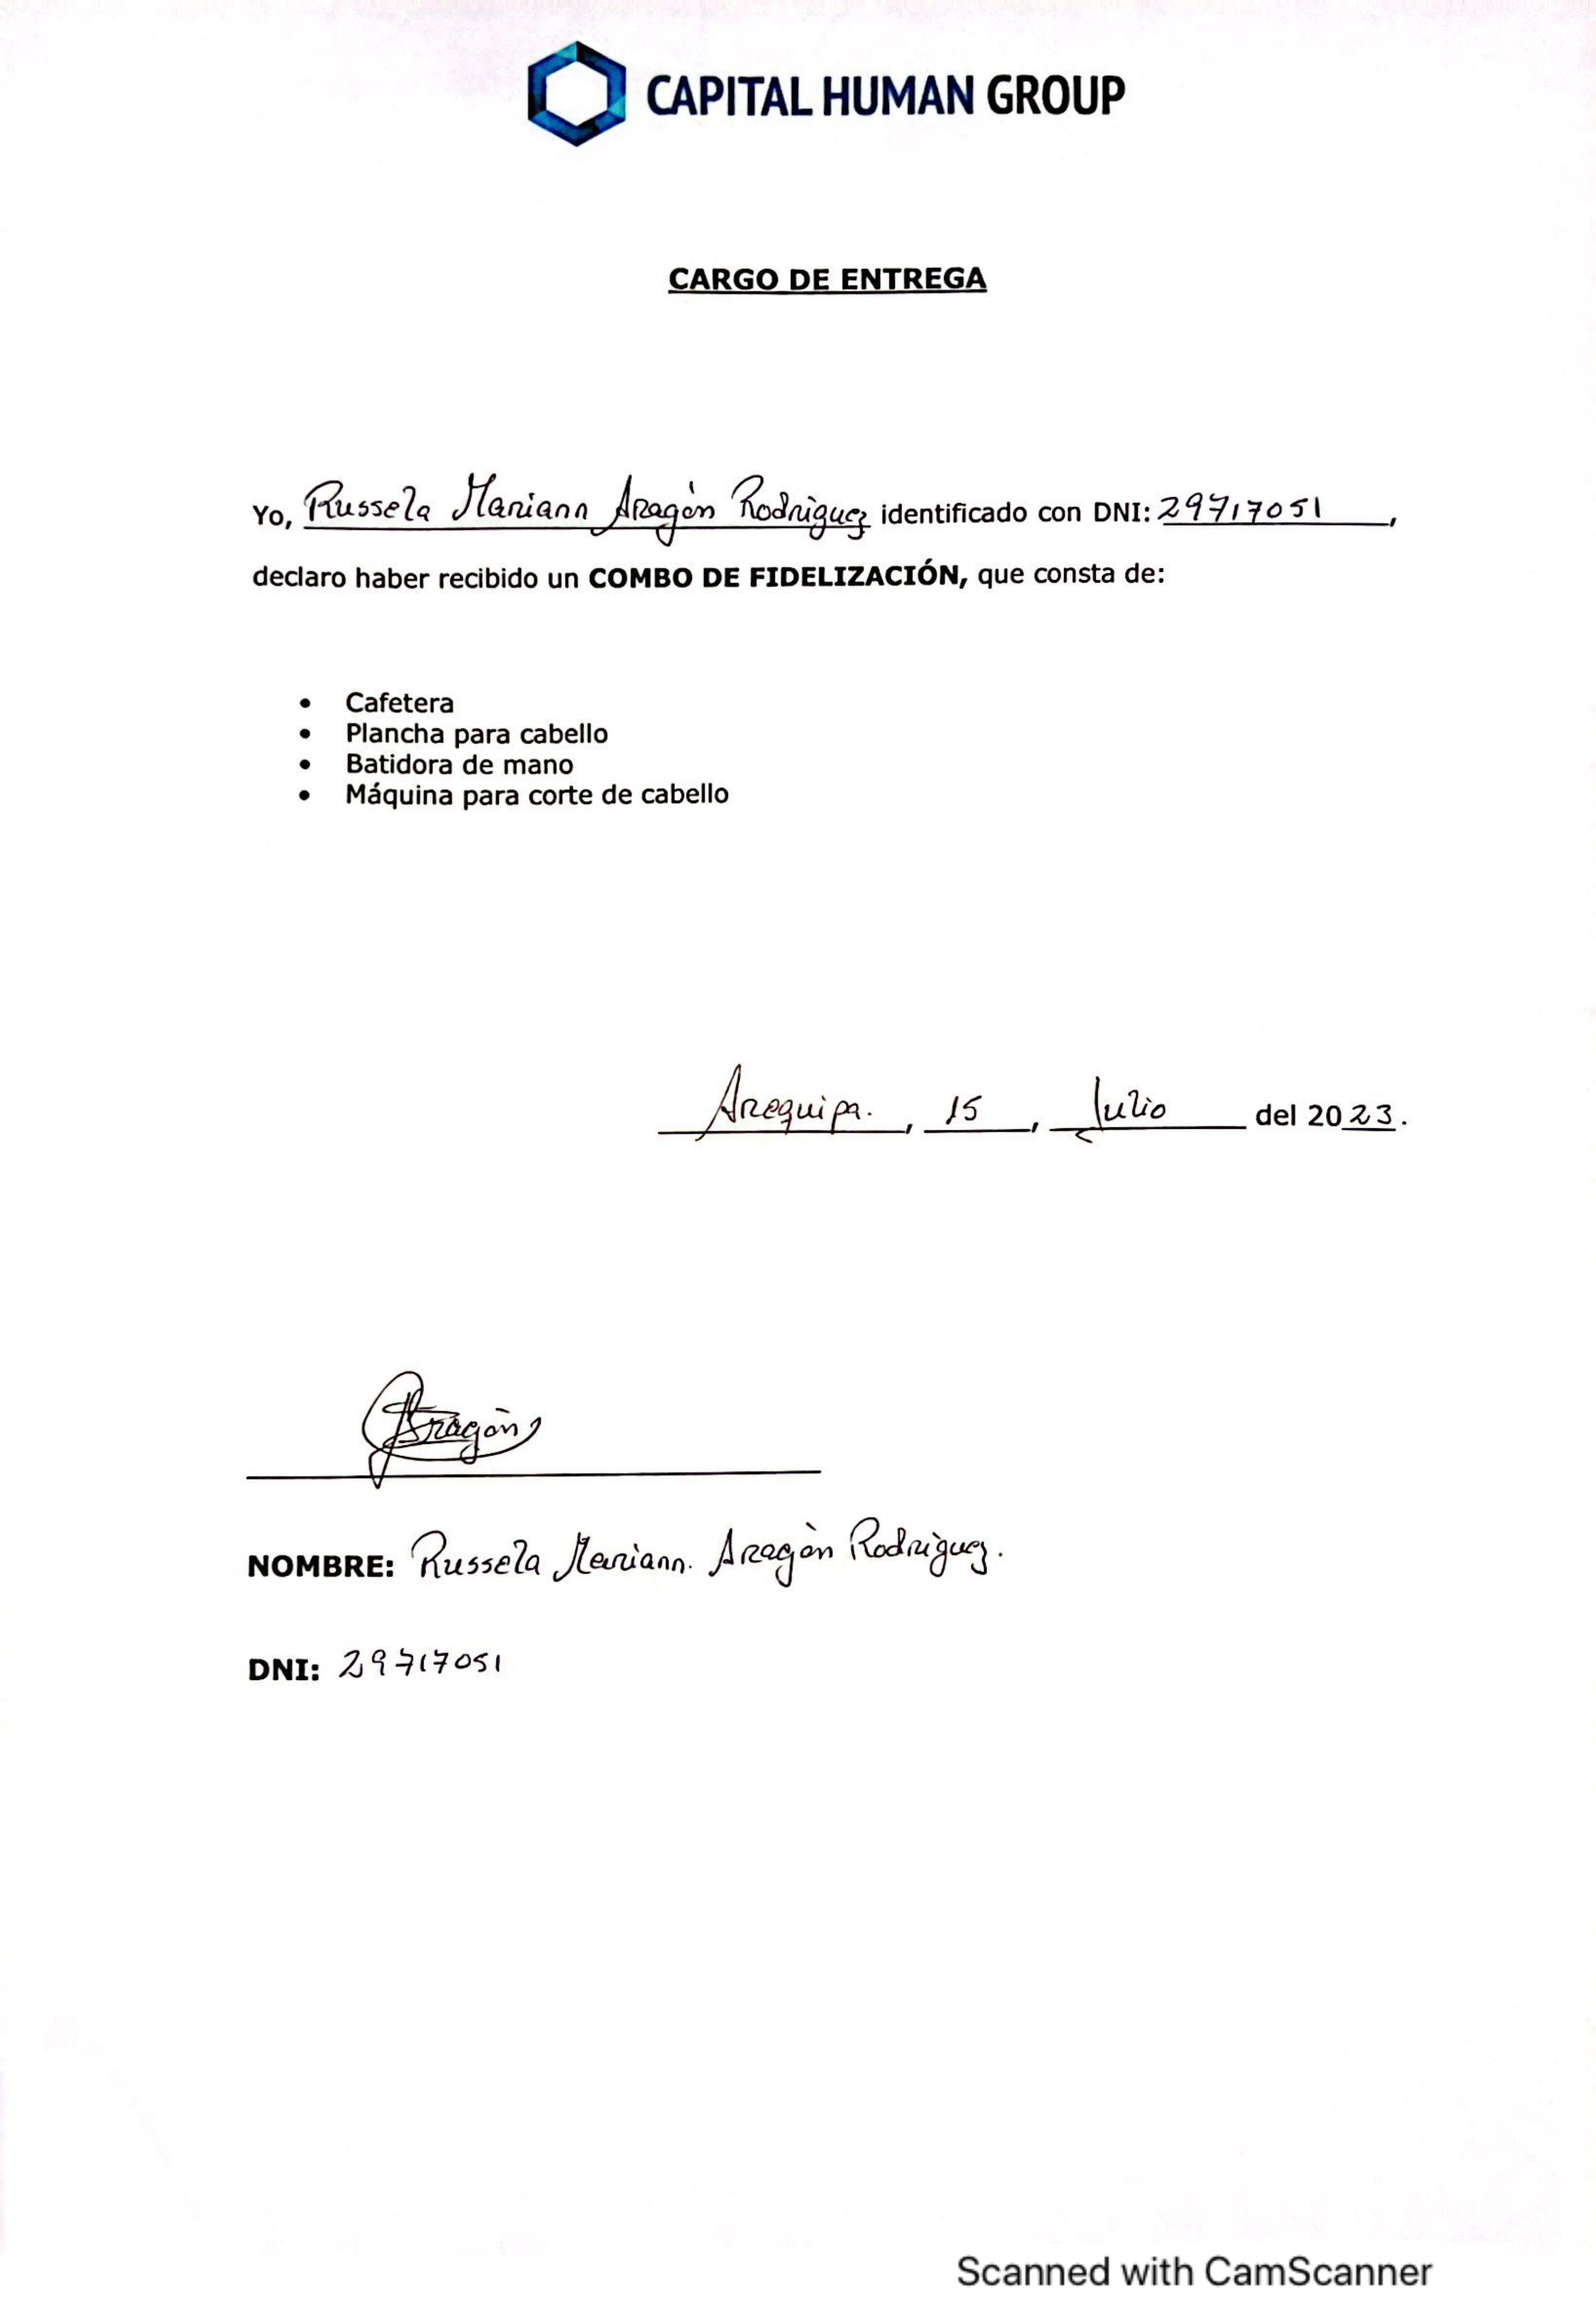 CAPITAL HUMAN GROUP
CARGO DE ENTREGA
Yo, Russela Mariann Aragón Rodriguez identificado con DNI: 29717051,
declaro haber recibido un COMBO DE FIDELIZACIÓN, que consta de:
• Cafetera
• Plancha para cabello
• Batidora de mano
• Máquina para corte de cabello
Arequipa. , 15 , Julio del 2023.
Aragón
NOMBRE: Russela Mariann. Aragón Rodríguez.
DNI: 29717051
Scanned with CamScanner